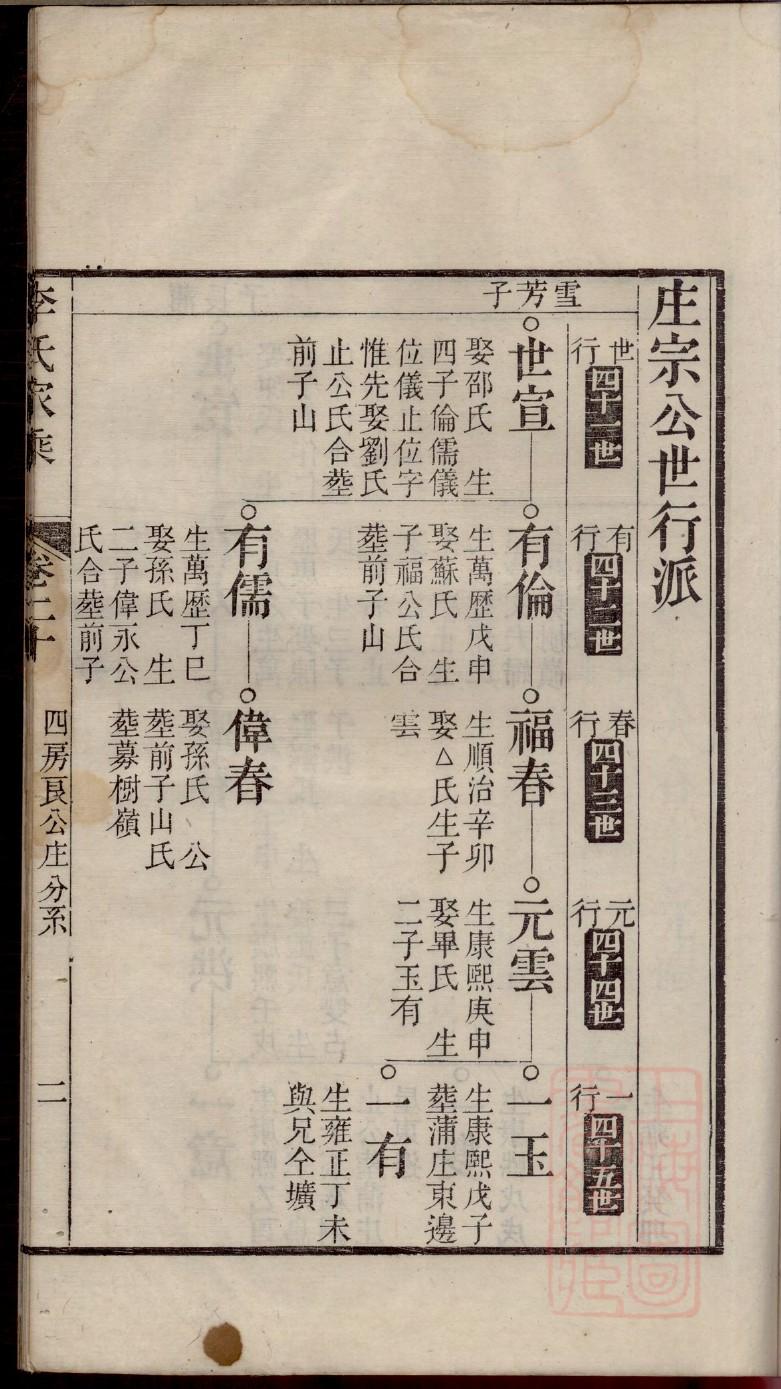 庄宗公世行派
世行 四十一世
有行 四十二世
春行 四十三世
元行 四十四世
一行 四十五世
雪芳子
世宣
娶邵氏 生
四子倫儒儀
位儀止位字
惟先娶劉氏
止公氏合塟
前子山
有倫
生萬歷戊申
娶蘇氏 生
子福公氏合
塟前子山
福春
生順治辛卯
娶△氏生子
雲
元雲
生康熙庚申
娶畢氏 生
二子玉有
一玉
生康熙戊子
塟蒲庄東邊
一有
生雍正丁未
與兄仝壙
有儒
生萬歷丁巳
娶孫氏 生
二子偉永公
氏合塟前子
偉春
娶孫氏 公
塟前子山氏
塟募樹嶺
李氏家乘
卷二十
四房良公庄分系
二